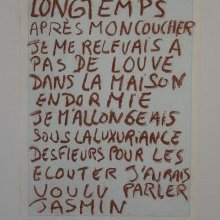 LONGTEMPS
APRÈS MON COUCHER
JE ME RELEVAIS A
PAS DE LOUVE
DANS LA MAISON
ENDORMIE
JE M'ALLONGEAIS
SOUS LA LUXURIANCE
DES FIEURS POUR LES
ECOUTER J'AURAIS
VOULU PARLER
JASMIN